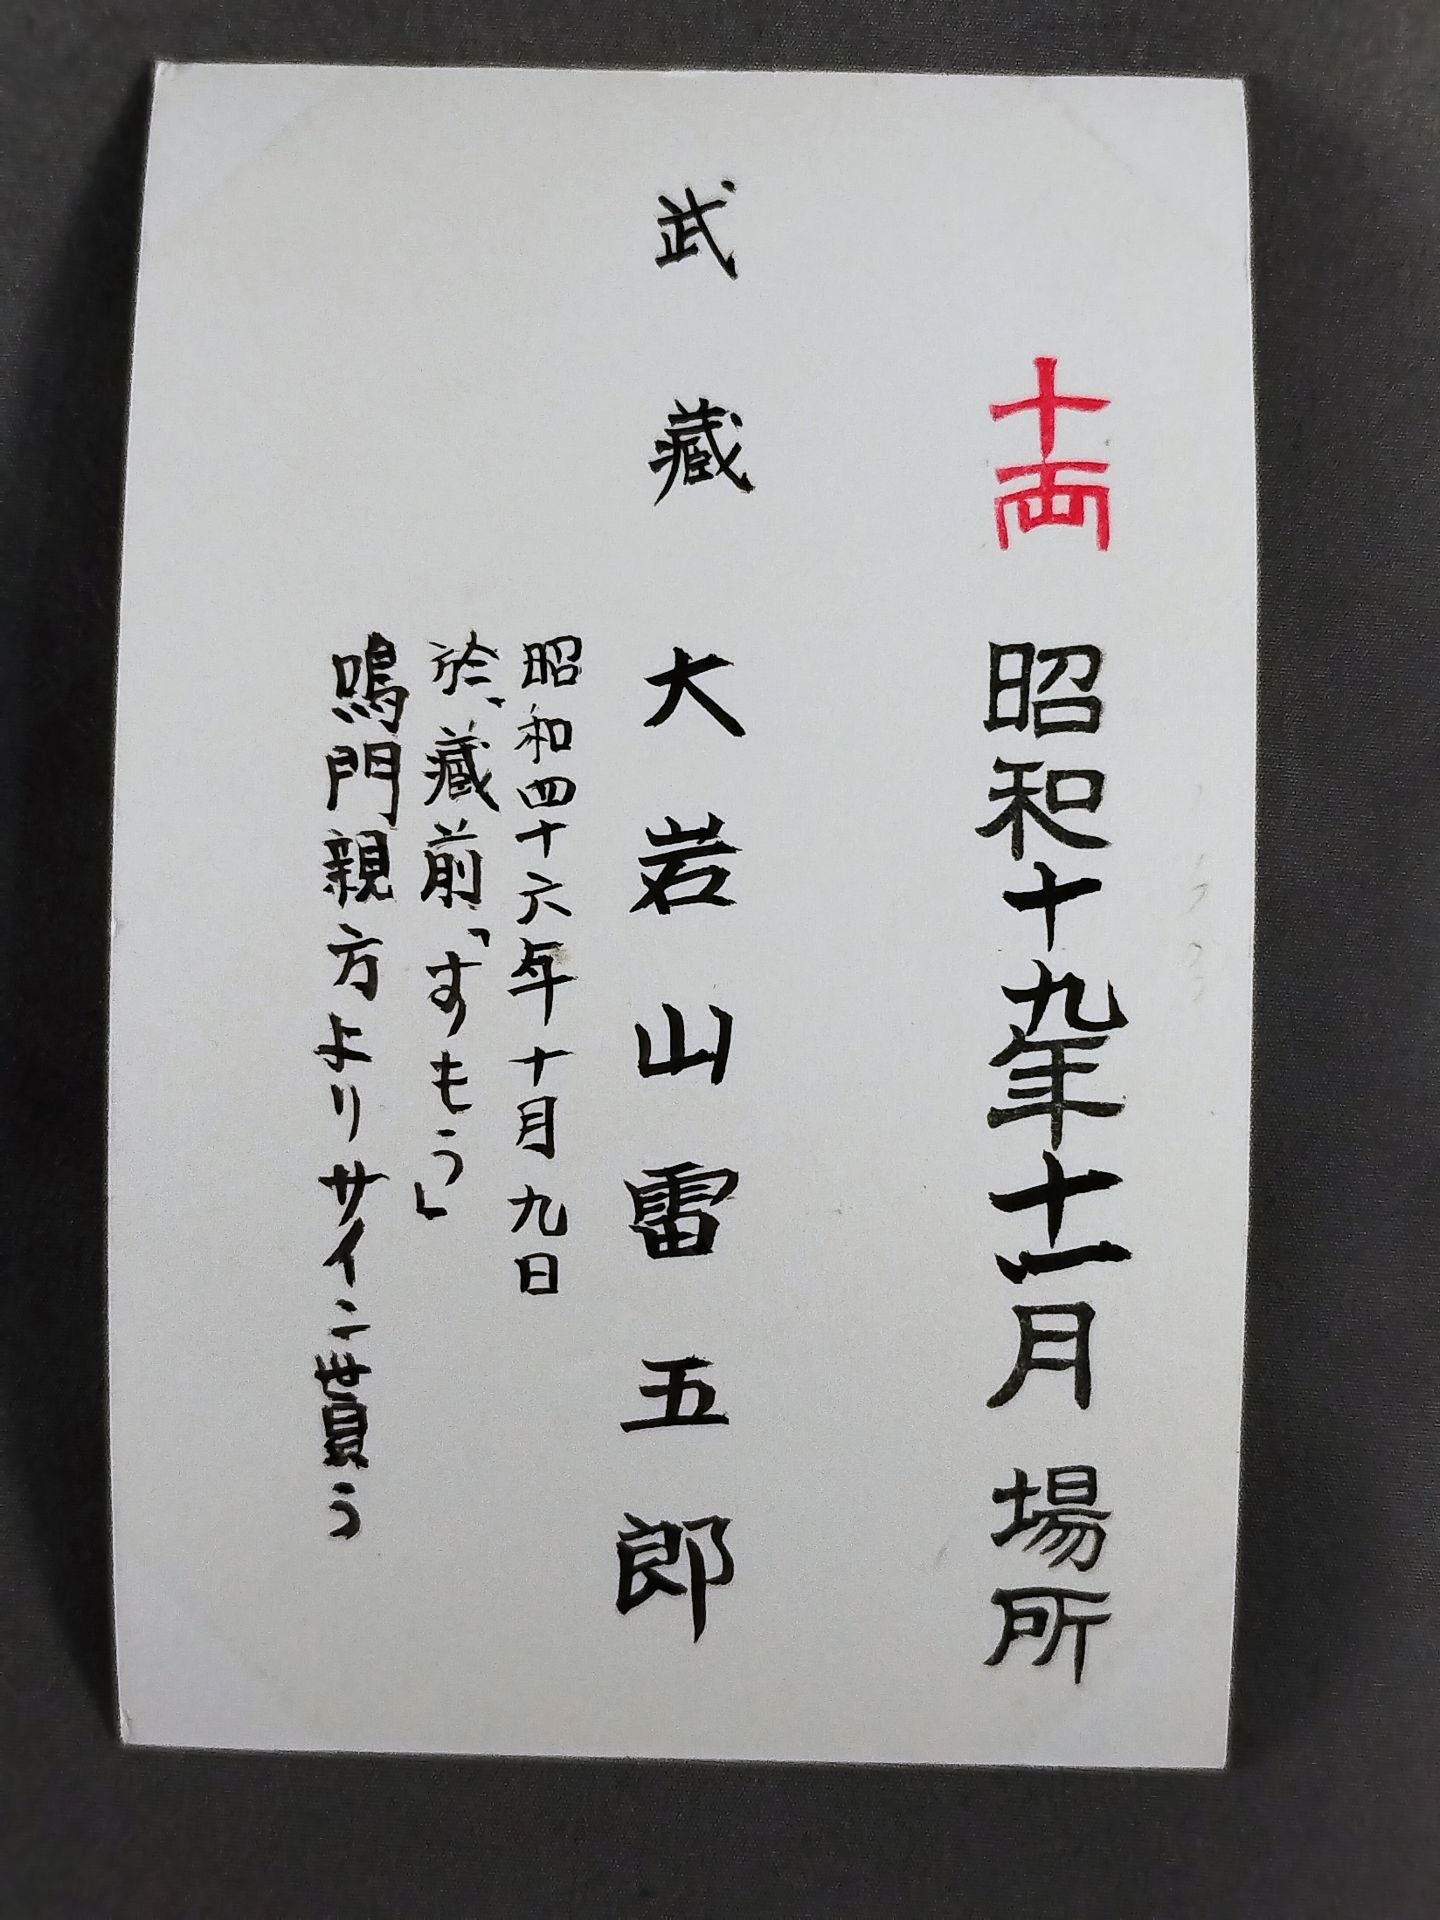 十両 昭和十九年十一月場所
武藏 大岩山雷五郎
昭和四十六年十月九日
於、藏前「すもう」
鳴門親方よりサイン貰う